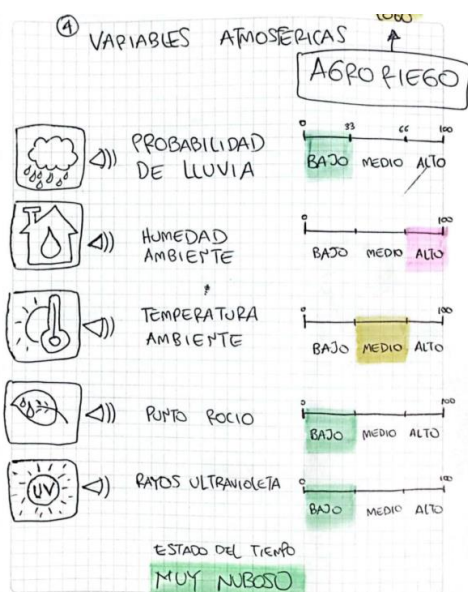 4 VARIABLES ATMOSFERICAS
LOGO
AGRO RIEGO
PROBABILIDAD
DE LLUVIA
0 33 66 100
BAJO MEDIO ALTO
HUMEDAD
AMBIENTE
0 100
BAJO MEDIO ALTO
TEMPERATURA
AMBIENTE
0 100
BAJO MEDIO ALTO
PUNTO ROCIO
0 100
BAJO MEDIO ALTO
UV
RAYOS ULTRAVIOLETA
0 100
BAJO MEDIO ALTO
ESTADO DEL TIEMPO
MUY NUBOSO